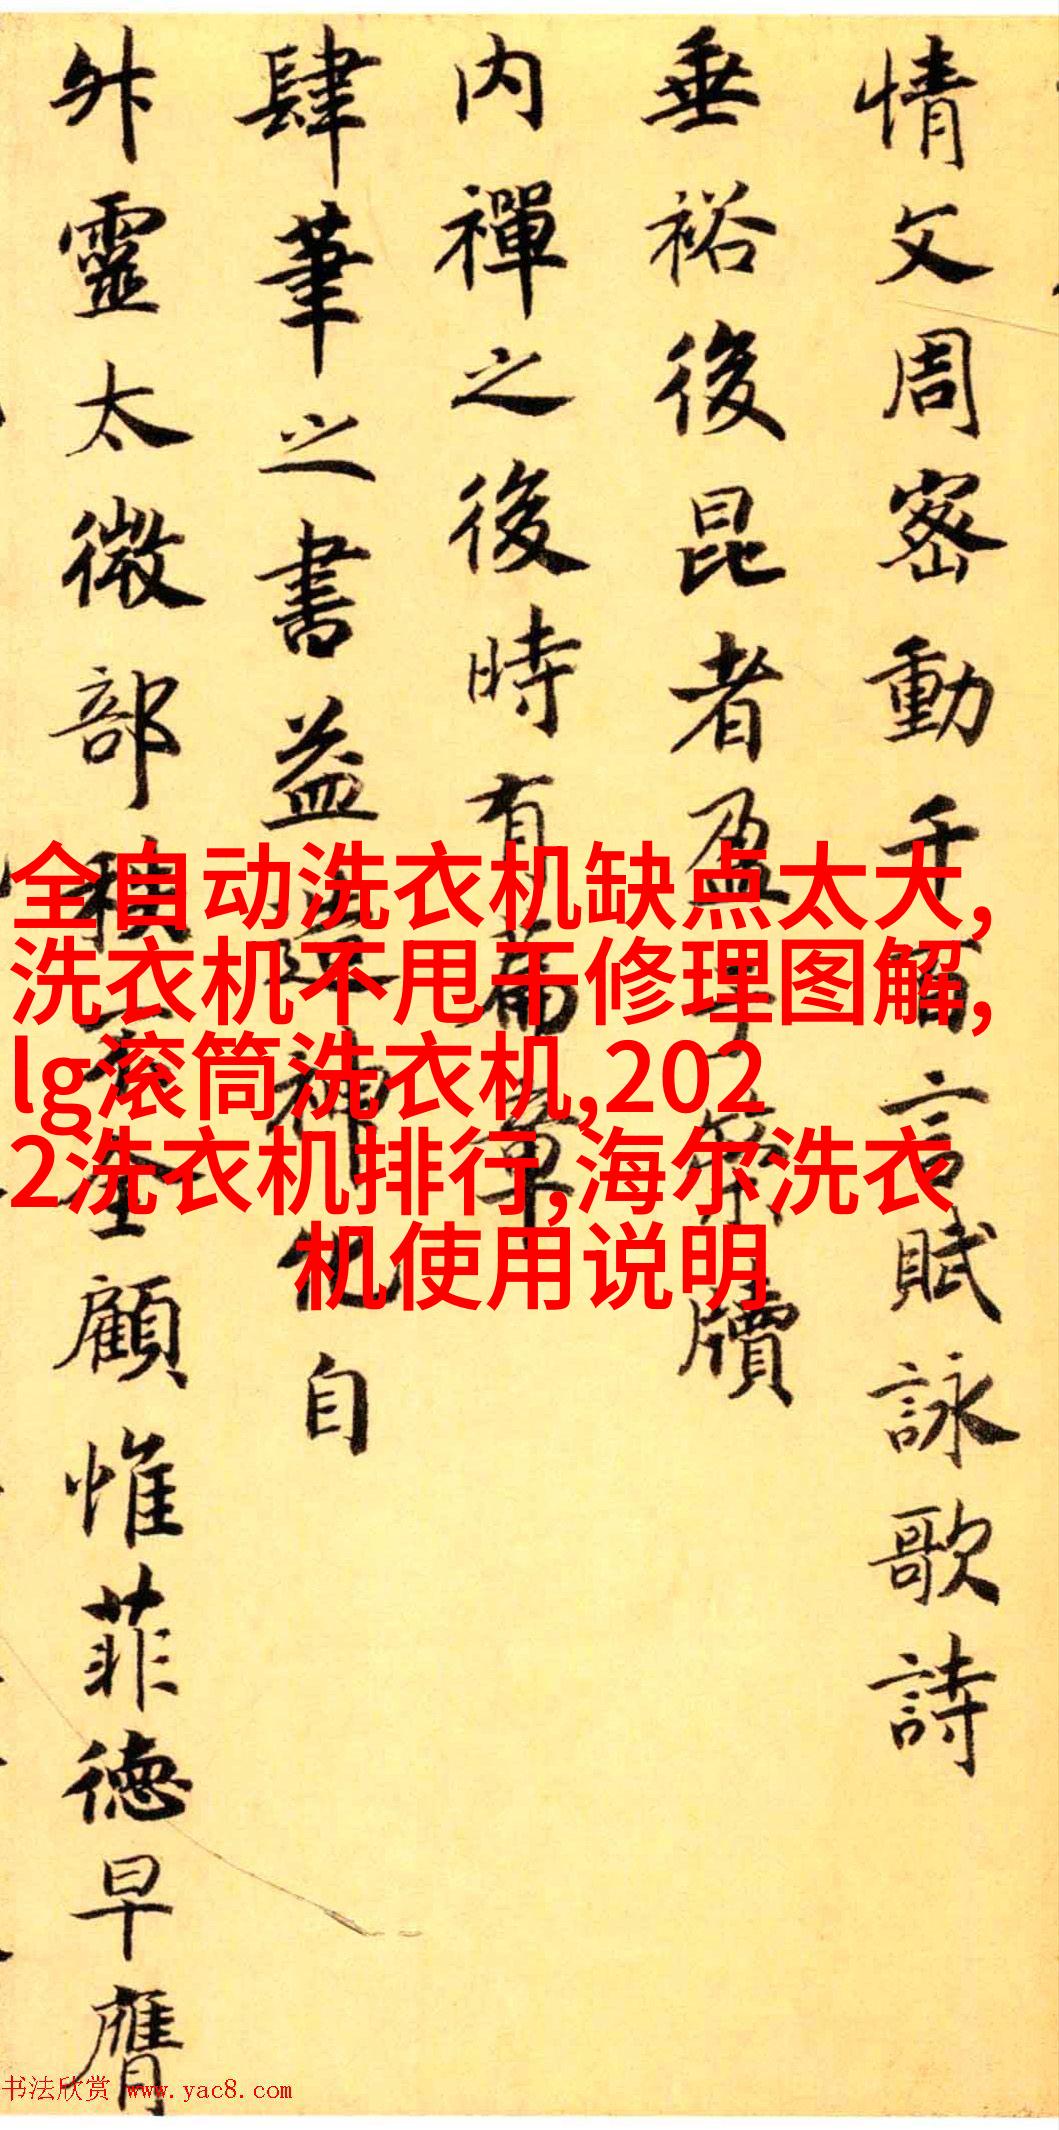 情文周密動千言賦詠歌詩
垂裕後昆者盈牘
内禪之後時有篇章
肆筆之書益造神化自
靈太微部積全顧惟菲德早膺
全自动洗衣机缺点太大,
洗衣机不甩干修理图解,
lg滚筒洗衣机,202
2洗衣机排行,海尔洗衣
机使用说明
书法欣赏 www.yac8.com